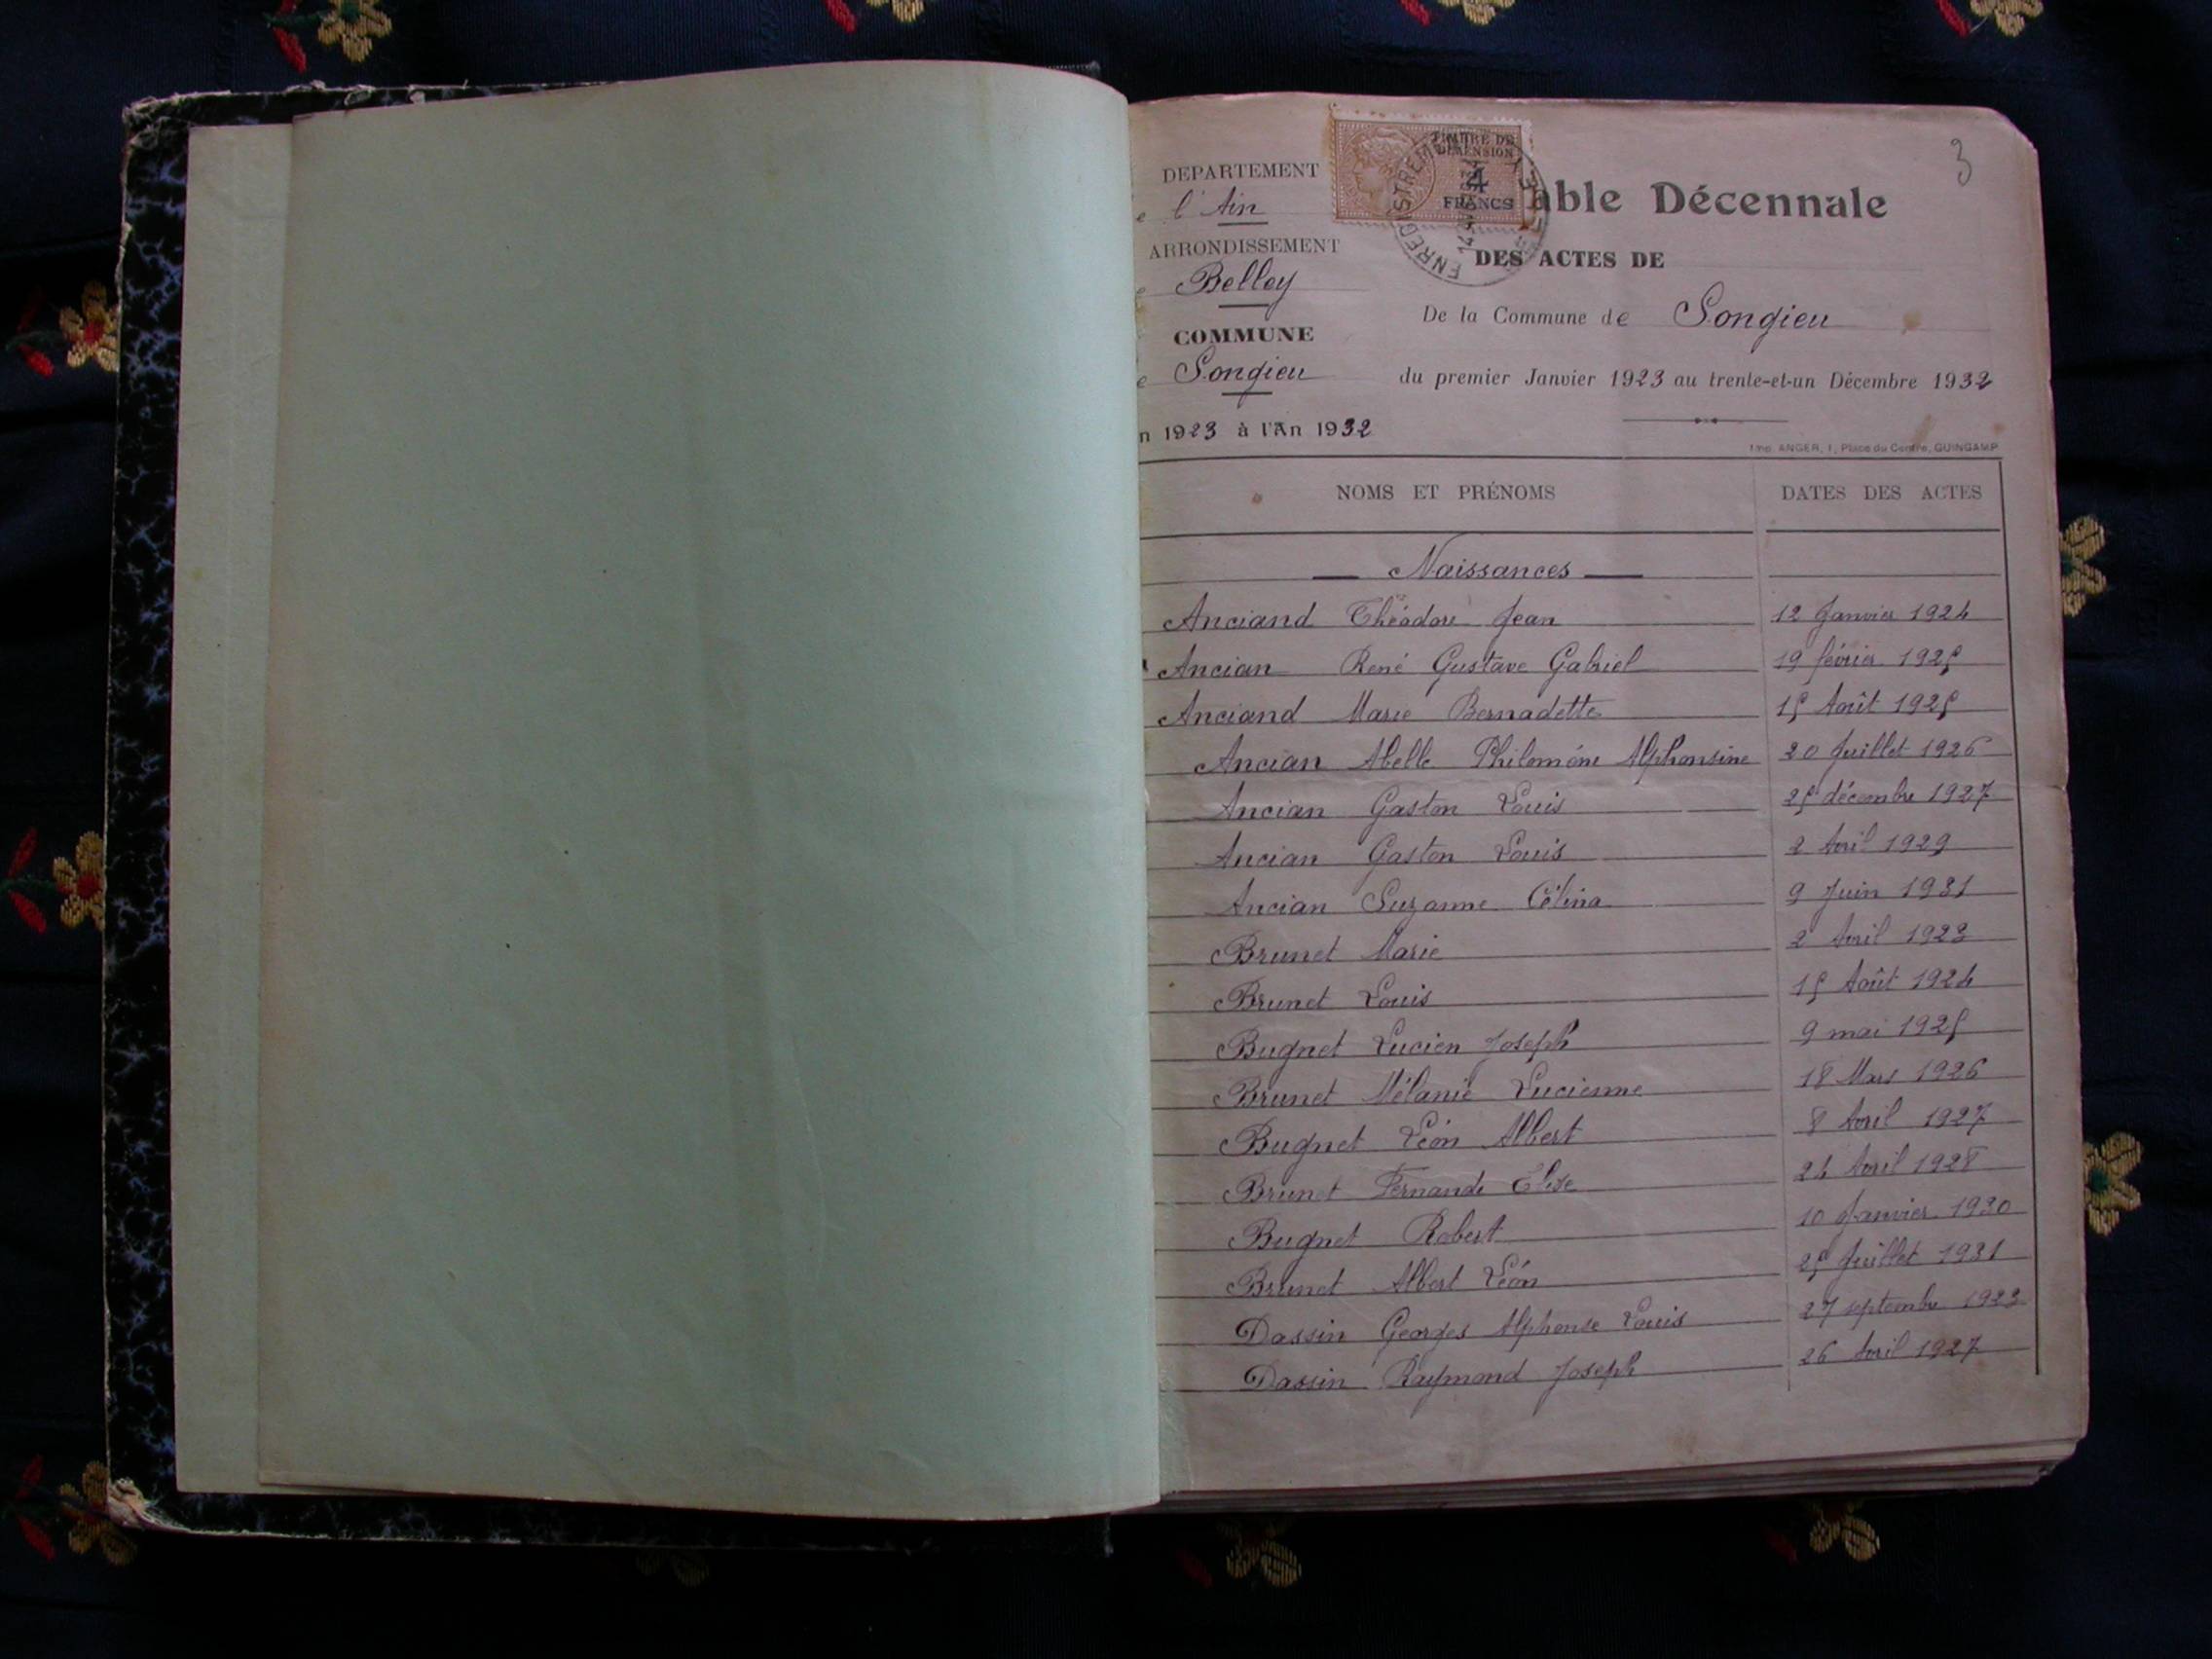 3
DEPARTEMENT
e l'Ain
ARRONDISSEMENT
e Belley
COMMUNE
e Songieu
n 1923 à l'An 1932
TIMBRE DE
DIMENSION
4
FRANCS
ENREGISTREMENT
able Décennale
DES ACTES DE
De la Commune de Songieu
du premier Janvier 1923 au trente-et-un Décembre 1932
Imp. ANGER, 1, Place du Centre, GUINGAMP
NOMS ET PRÉNOMS DATES DES ACTES
Naissances
Anciand Théodore Jean 12 Janvier 1924
Ancian René Gustave Gabriel 19 février 1925
Anciand Marie Bernadette 15 Août 1925
Ancian Abelle Philomène Alphonsine 20 Juillet 1926
Ancian Gaston Louis 25 décembre 1927
Ancian Gaston Louis 2 Avril 1929
Ancian Suzanne Célina 9 Juin 1931
Brunet Marie 2 Avril 1923
Brunet Louis 15 Août 1924
Bugnet Lucien Joseph 9 mai 1925
Brunet Mélanie Lucienne 18 Mars 1926
Bugnet Léon Albert 8 Avril 1927
Brunet Fernande Elise 24 Avril 1928
Bugnet Robert 10 Janvier 1930
Brunet Albert Léon 25 Juillet 1931
Dassin Georges Alphonse Louis 27 septembre 1923
Dassin Raymond Joseph 26 Avril 1927